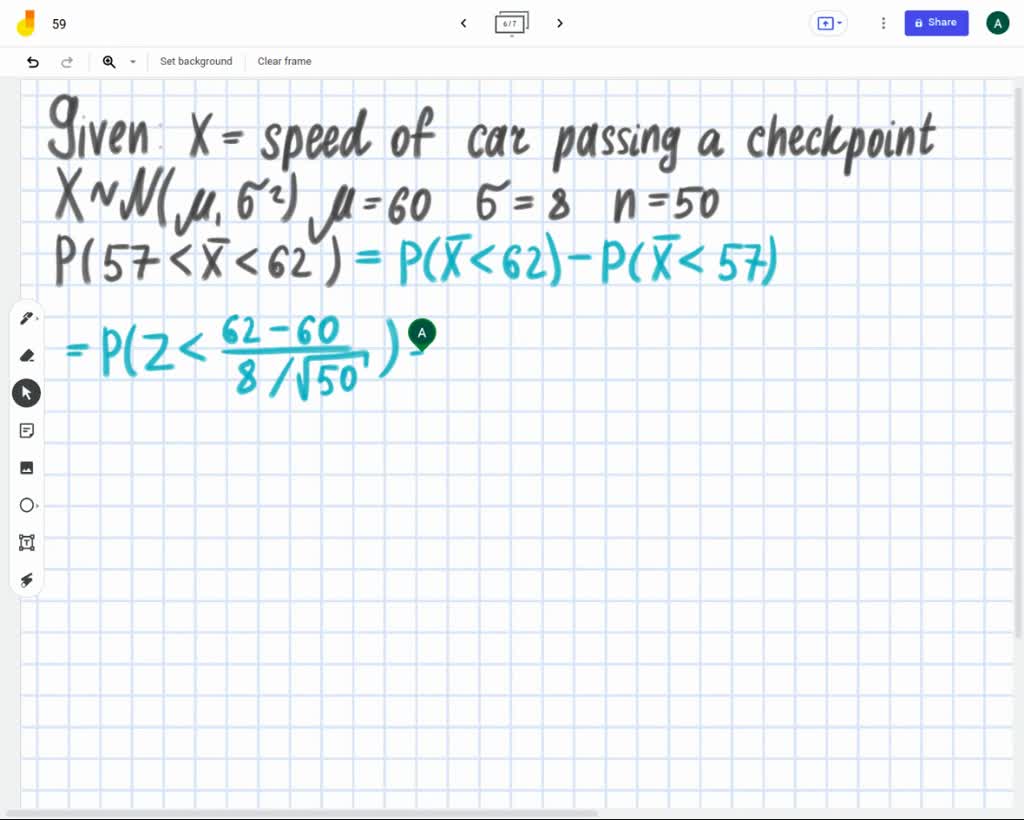 59
6/7
Share
A
Set background
Clear frame
Given: X = speed of car passing a checkpoint
X ~ N(μ, σ²) μ = 60 σ = 8 n = 50
P(57 < X̄ < 62) = P(X̄ < 62) - P(X̄ < 57)
= P(Z < (62 - 60)/(8/√50)) -
A
T